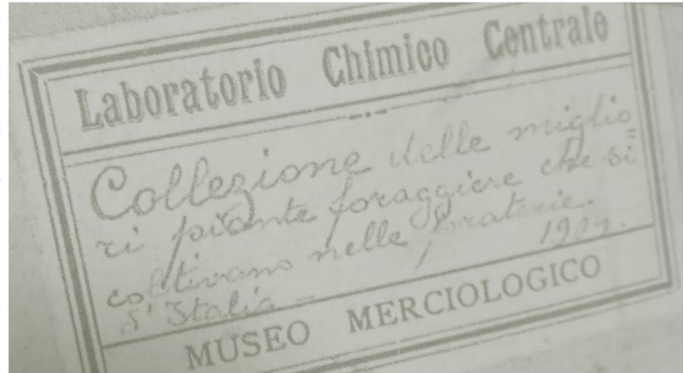 Laboratorio Chimico Centrale
Collezione delle miglio=
ri piante foraggiere che si
coltivano nelle praterie
d'Italia - 1909.
MUSEO MERCIOLOGICO